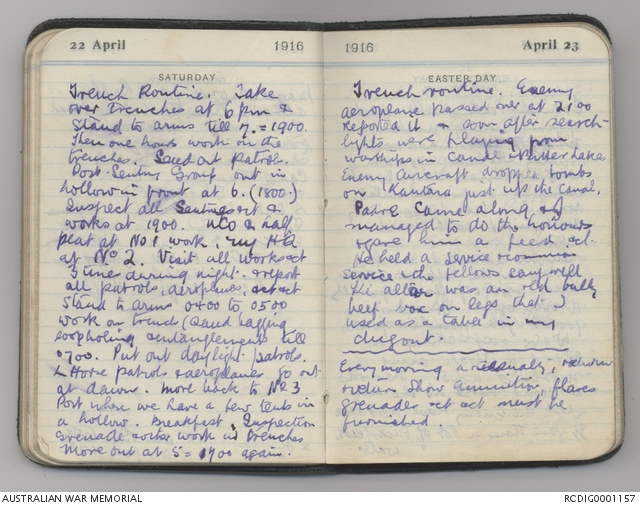 22 April 1916
SATURDAY
Trench Routine. Take
over trenches at 6 pm &
Stand to arms till 7. = 1900.
Then one hours work on the
trenches. Send out patrols.
Post Sentry Group out in
hollow in front at 6. (1800.)
Inspect all Sentries &
works at 1900. NCO & half
plat at No 1 work, my HQ
at No 2. Visit all works
3 time during night. & report
all patrols, aeroplanes,
Stand to arms 0400 to 0500
work on trench (Sand bagging
loopholing entanglements till
0700. Put out daylight patrols.
Horse patrols & aeroplanes go out
at dawn. Move back to No 3
Post where we have a few tents in
a hollow. Breakfast, Inspection
Grenade work in trenches
Move out at 5 = 1700 again.
1916 April 23
EASTER DAY
Trench routine. Enemy
aeroplane passed over at 2100
reported it & soon after search-
lights were playing from
warships in canal & bitter lakes
Enemy aircraft dropped bombs
on Kantara just up the Canal.
Padre came along & I
managed to do the honours
& gave him a feed
He held a service
service & the fellows sang well
The altar was an old bully
beef box on legs that I
used as a table in my
dugout.
Every morning a casualty, return
return show ammunition, flares
grenades must be
furnished
AUSTRALIAN WAR MEMORIAL
RCDIG0001157